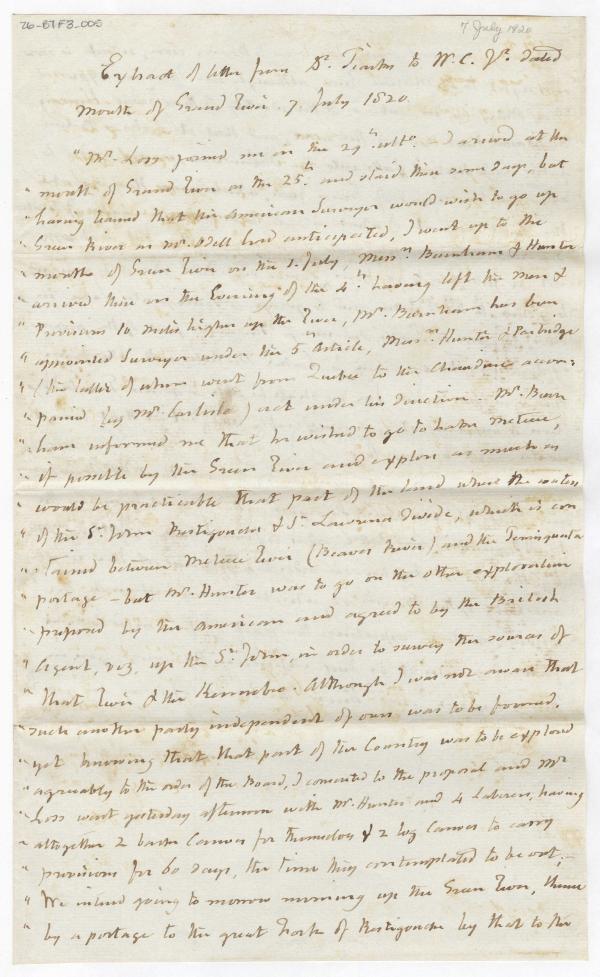 76-BTF3-005
7 July 1820
Extract of letter from Dr. Tiarks to W. C. Jr. dated
Mouth of Grand River 7 July 1820.
"Mr. Loss joined me on the 24th ulto. I arrived at the
" mouth of Grand River on the 25th and staid there some days, but
" having learned that the American Surveyor would wish to go up
" Green River as Mr. Odell had anticipated, I went up to the
" mouth of Green River on the 1. July, Messrs Burnham & Hunter
" arrived there on the Evening of the 4th having left the men &
" Provisions 10 miles higher up the River, Mr. Burnham has been
" appointed Surveyor under the 5th Article, Messrs Hunter & Partridge
" (the latter of whom went from Quebec to the Chaudiere accom=
" panied by Mr. Carlile) act under his direction. Mr. Burn
" ham informed me that he wished to go to Lake Metous,
" if possible by the Green River and explore as much as
" would be practicable that part of the land where the waters
" of the St. John Restigouche & St. Lawrence divide, which is con
" tained between Metous River (Beaver River) and the Temisquata
" portage – but Mr. Hunter was to go on the other exploration
" proposed by the American and agreed to by the British
" Agent, viz, up the St. John, in order to survey the sources of
" that River & the Kennebec. Although I was not aware that
" such another party independent of ours was to be formed,
" yet knowing that that part of the Country was to be explored
" agreeably to the order of the Board, I consented to the proposal and Mr
" Loss went yesterday afternoon with Mr. Hunter and 4 Laborers, having
" altogether 2 bark Canoes for themselves & 2 log Canoes to carry
" provisions for 60 days, the time they contemplated to be out,–
" We intend going to morrow morning up the Green River, thence
" by a portage to the great Fork of Restigouche by that to the